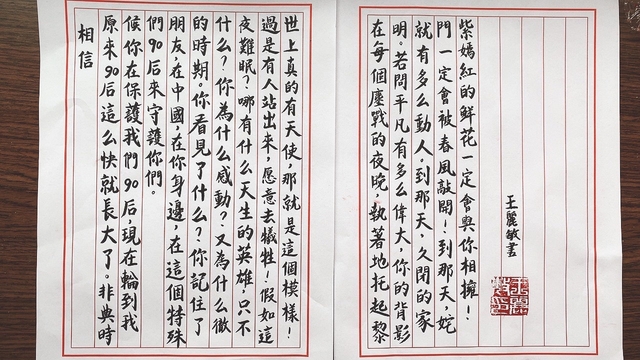 相信
原來90后這么快就長大了。非典時
候你在保護我們90后,現在輪到我
們90后來守護你們。
朋友,在中國,在你身邊,在這個特殊
的時期。你看見了什么?你記住了
什么?你為什么感動?又為什么徹
夜難眠?哪有什么天生的英雄,只不
過是有人站出來,愿意去犧牲!假如這
世上真的有天使,那就是這個模樣!
在每個鏖戰的夜晚,執著地托起黎
明。若問平凡有多么偉大,你的背影
就有多么動人。到那天,久閉的家
門一定會被春風敲開!到那天,姹
紫嫣紅的鮮花一定會與你相擁!
王麗敏書